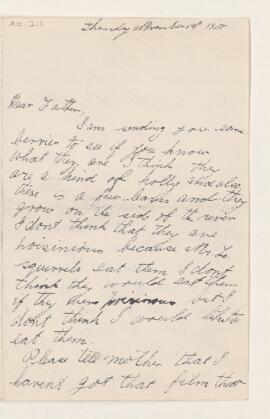 Acc 1211
Thursday November 1st 19
Dear Father,
I am sending you some
berries to see if you know
what they are I think they
are a kind of holly
is a few leaves and they
grow on the side of the river
I dont think that they are
because the
squirrels eat them I dont
think they would eat them
if they but I
dont think I would like to
eat them.
Please tell mother that I
havent got that film that